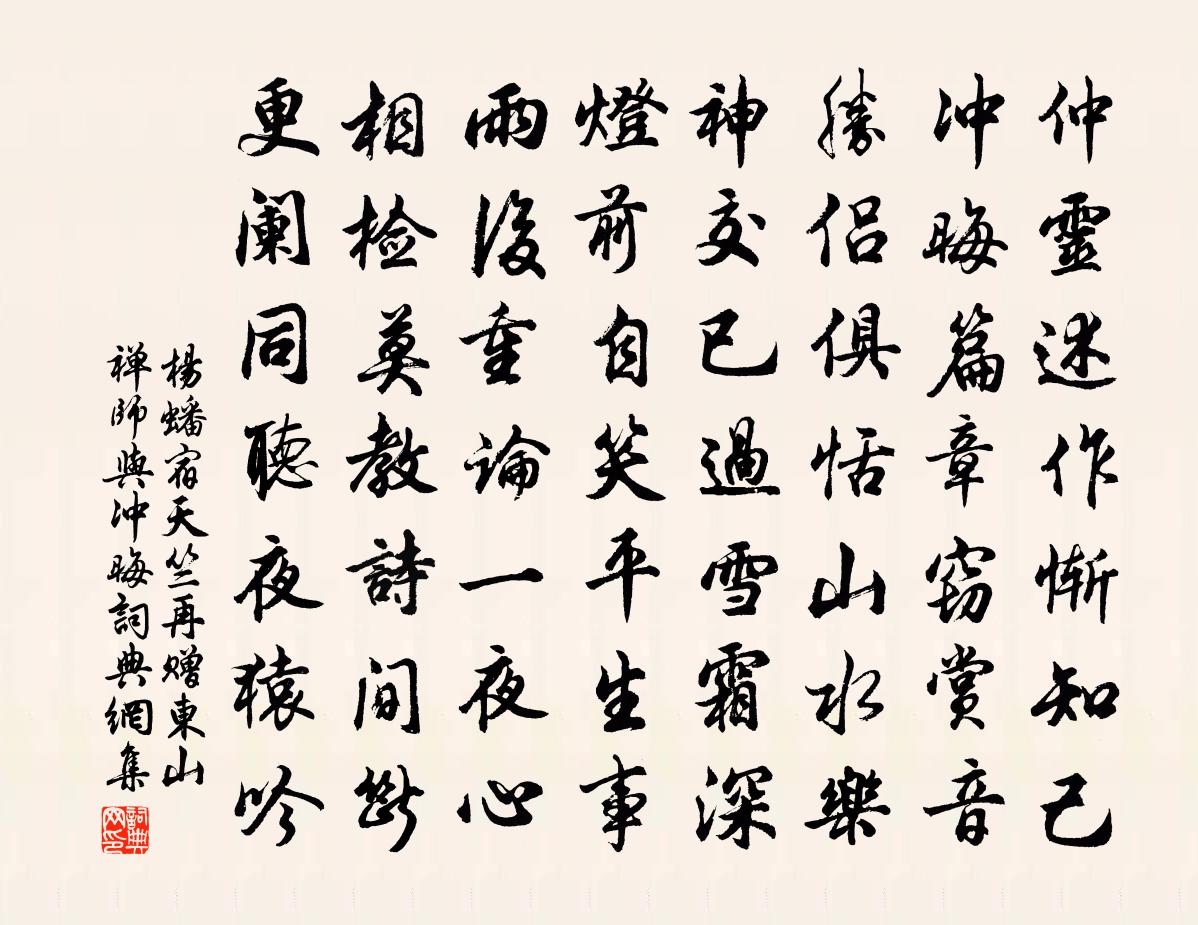 仲靈述作慚知己
冲晦篇章窃赏音
勝侣俱恬山水樂
神交已過雪霜深
燈前自笑平生事
雨後重論一夜心
相检莫教詩間斷
更阑同聽夜猿吟
楊蟠宿天竺再赠東山
禅師與冲晦詞典網集
詞典
网印